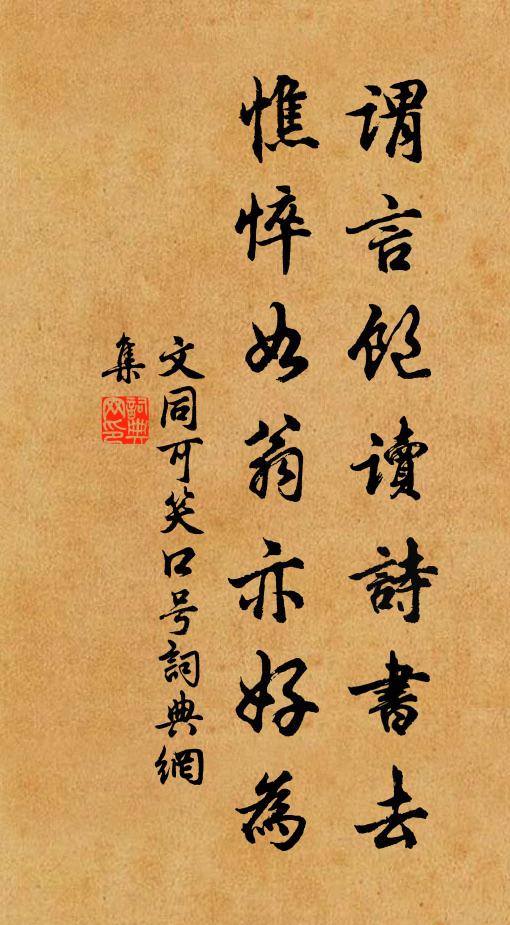 謂言飽讀詩書去
憔悴如翁亦好為
文同可笑口号詞典網
集
詞典
网印